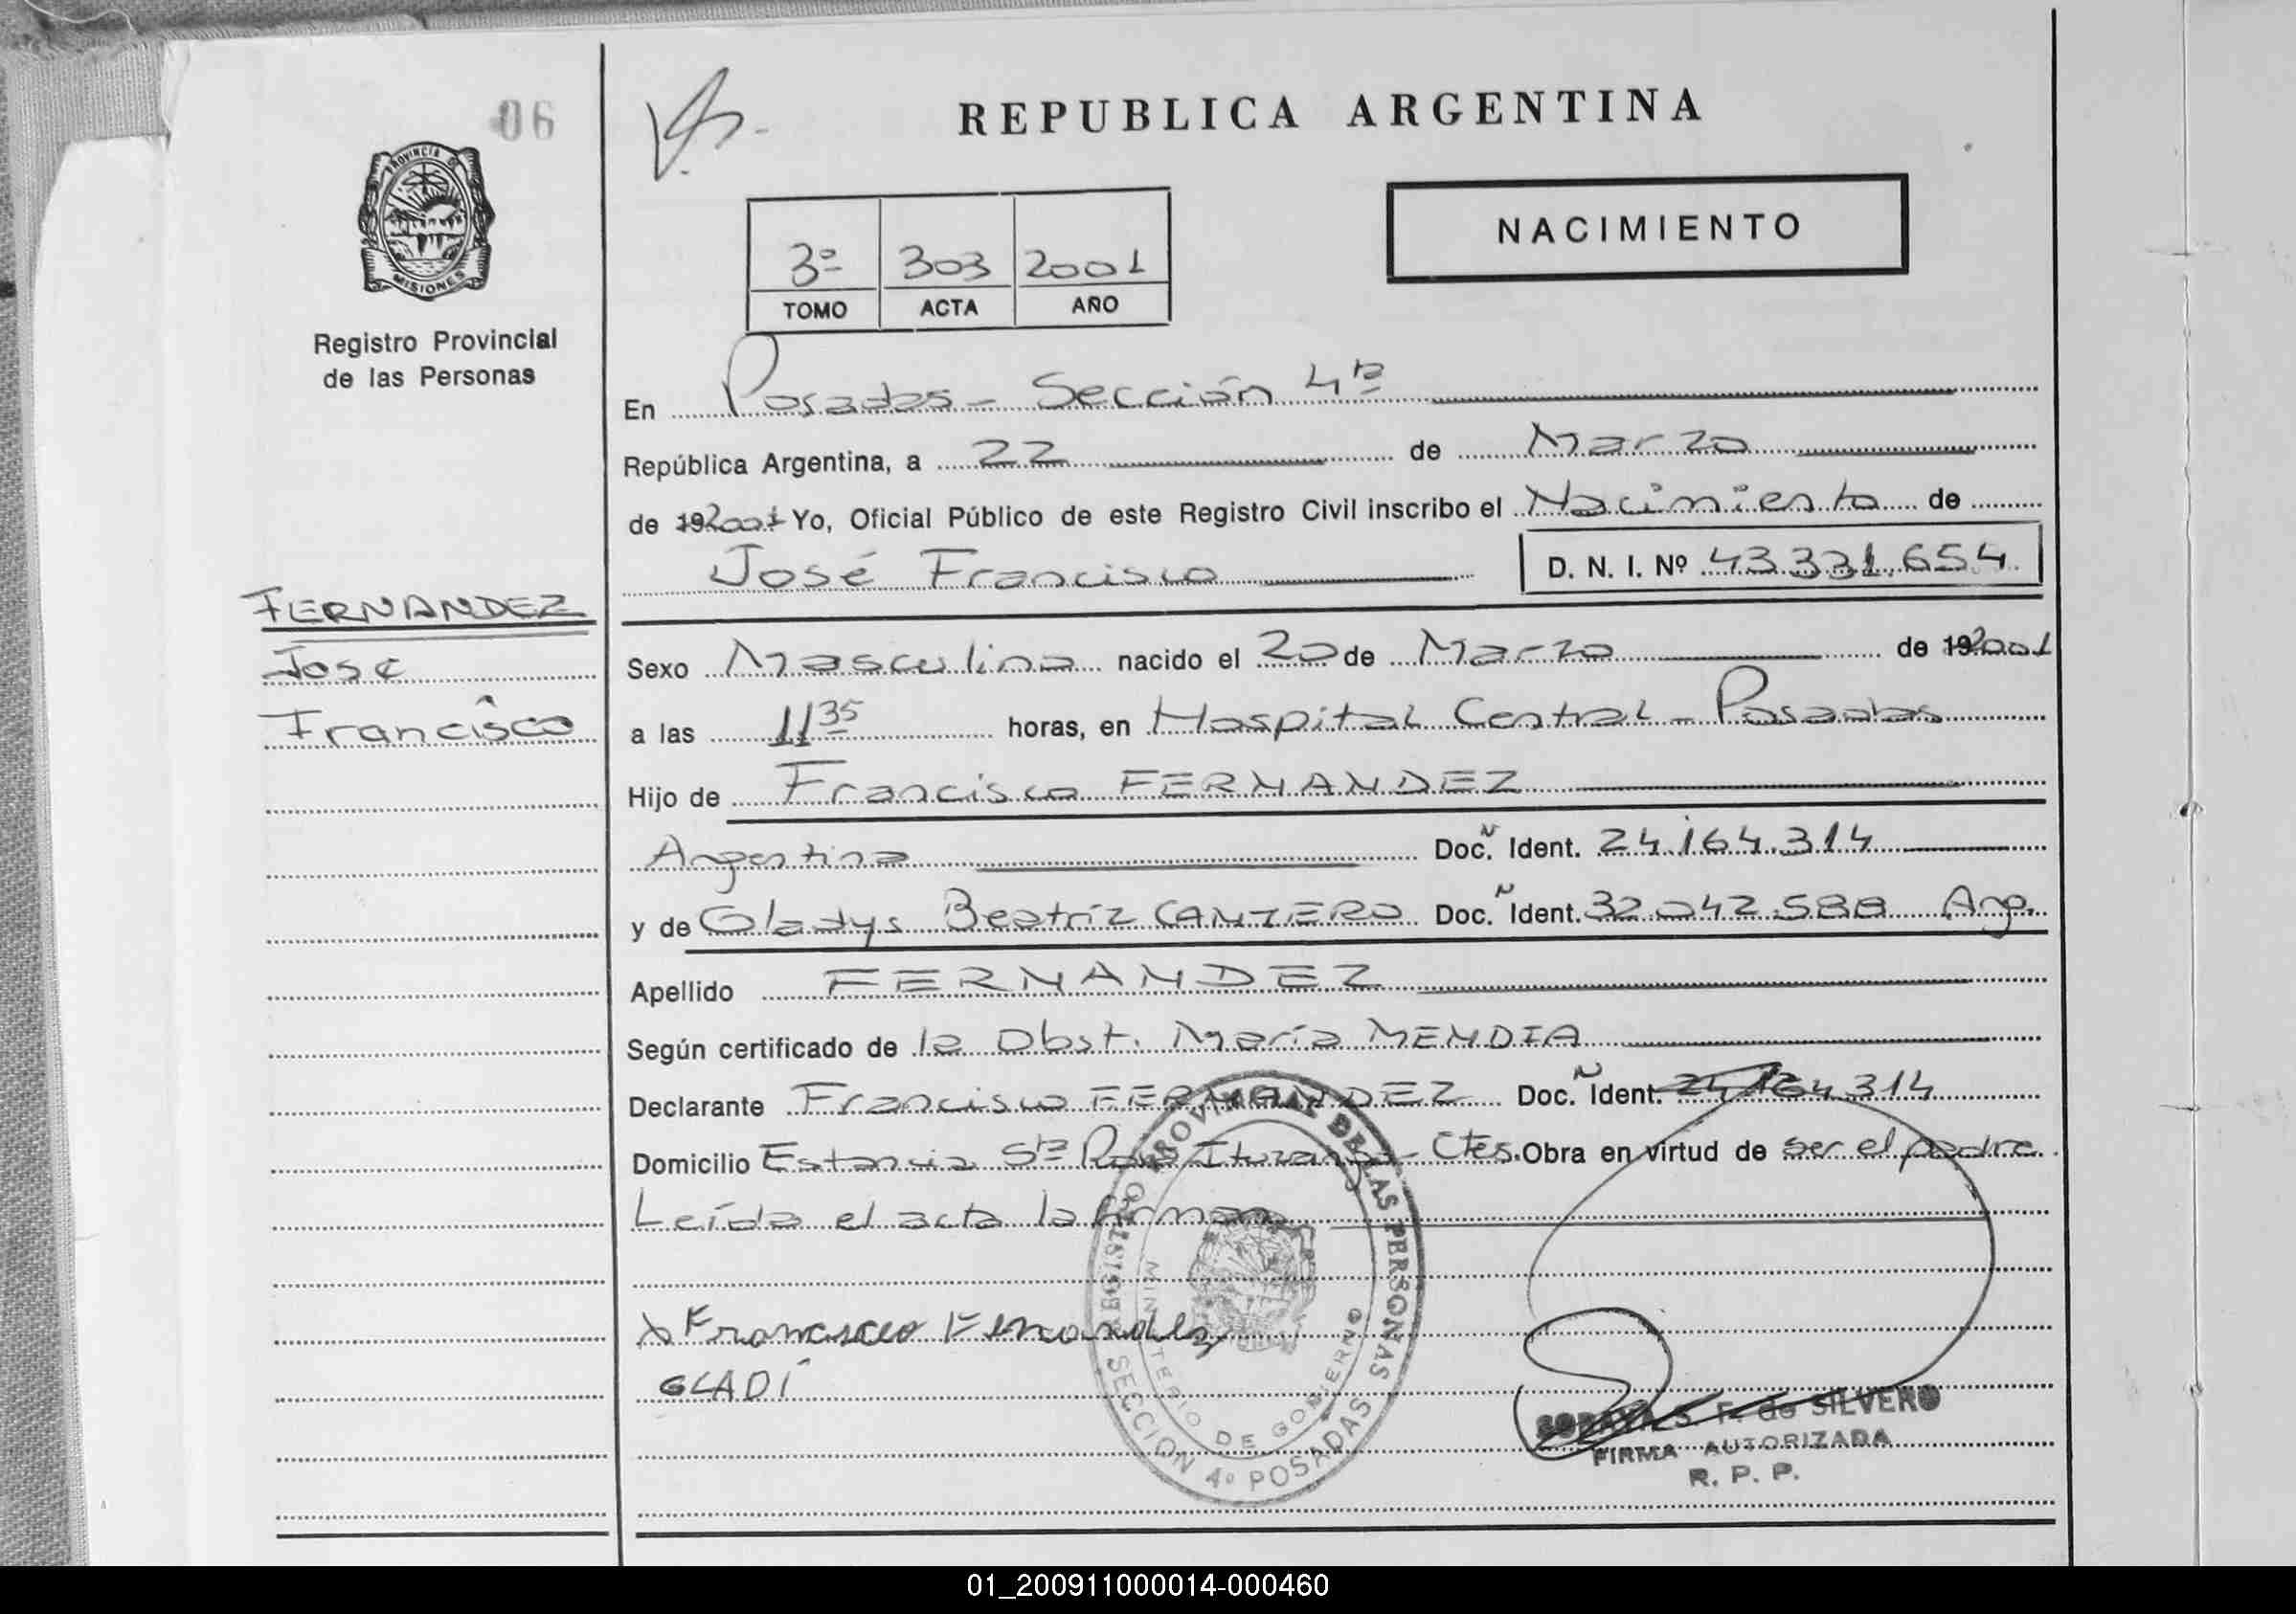 06
REPUBLICA ARGENTINA
PROVINCIA DE
MISIONES
NACIMIENTO
3º 303 2001
TOMO ACTA AÑO
Registro Provincial
de las Personas
En Posadas - Sección 4ta
República Argentina, a 22 de Marzo
de 192001 Yo, Oficial Público de este Registro Civil inscribo el Nacimiento de
José Francisco D. N. I. Nº 43.331.654
FERNANDEZ
José
Francisco
Sexo Masculino nacido el 20 de Marzo de 192001
a las 11 35 horas, en Hospital Central - Posadas
Hijo de Francisco FERNANDEZ
Argentina Doc. Ñ Ident. 24.164.314
y de Gladys Beatríz CANTERO Doc. Ñ Ident. 32.042.588 Arg.
Apellido FERNANDEZ
Según certificado de la Obst. María MENDIA
Declarante Francisco FERNANDEZ Doc. Ñ Ident. 24.164.314
Domicilio Estancia Sta Rosa Ituzaingo - Ctes. Obra en virtud de ser el padre
Leída el acta la firman
REGISTRO PROVINCIAL DE LAS PERSONAS
MINISTERIO DE GOBIERNO
SECCION 4º POSADAS
x Francisco Fernandez
GLADI
SORAYA S. F. de SILVERO
FIRMA AUTORIZADA
R. P. P.
01_200911000014-000460